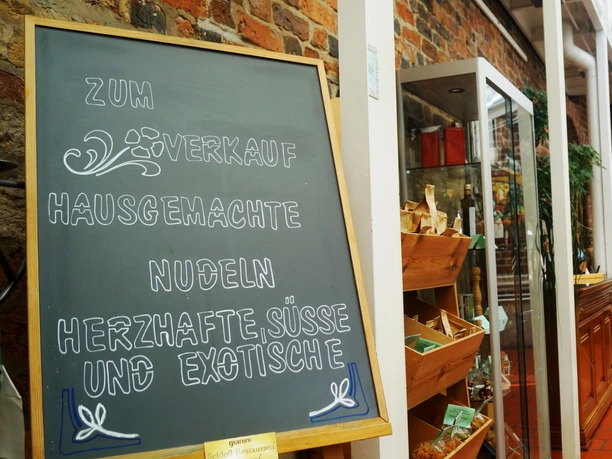 ZUM
VERKAUF
HAUSGEMACHTE
NUDELN
HERZHAFTE, SÜSSE
UND EXOTISCHE
Schloß Restaurant